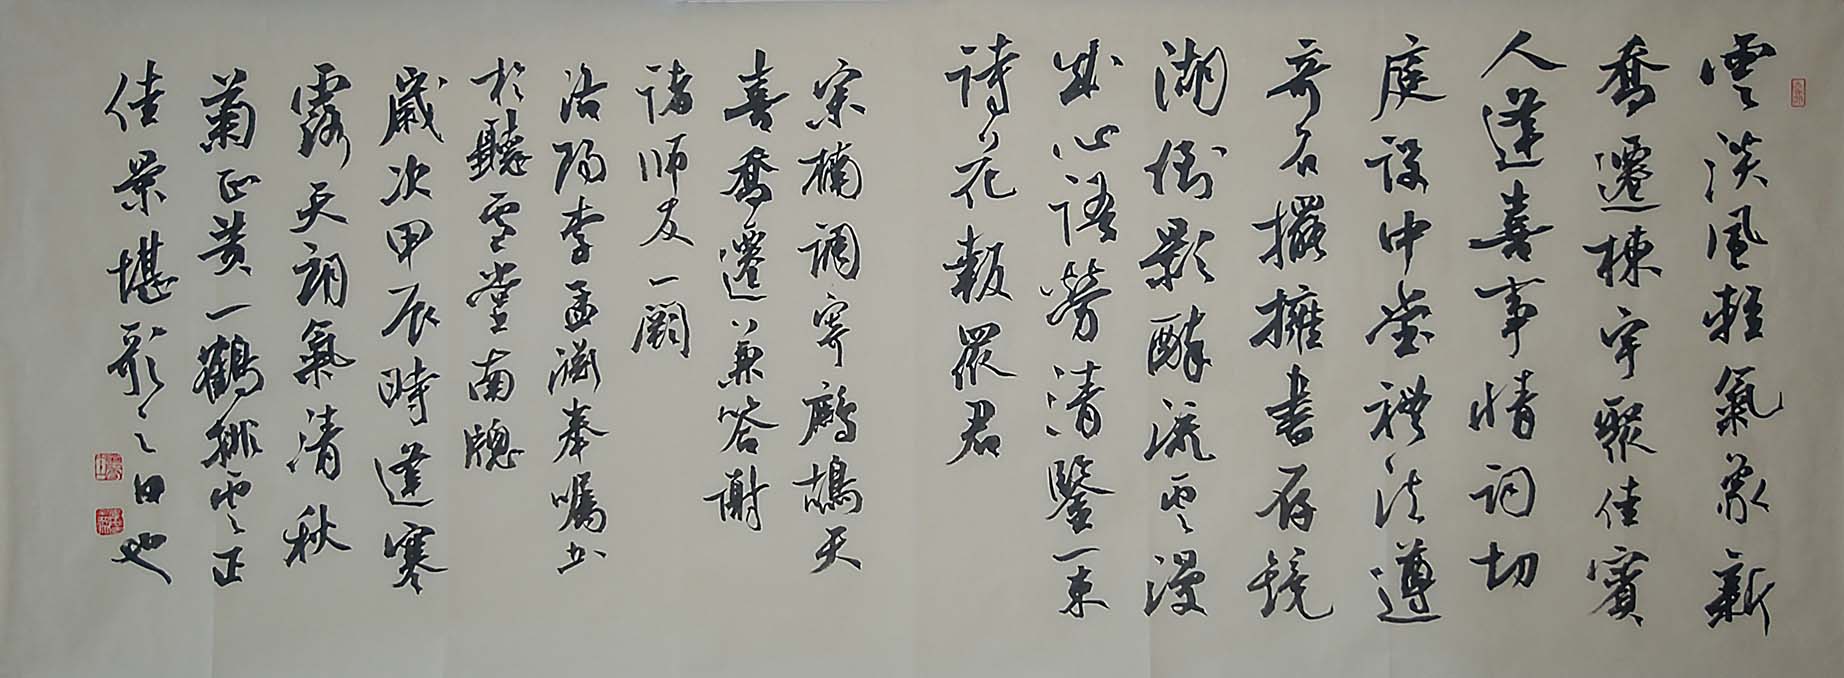 雲淡風輕氣象新
喬遷棟宇聚佳賓
人逢喜事情詞切
庭設中堂禮法遵
奇石擺擁書存鏡
湖倒影醉流雲漫
此心語勞清鑒一束
詩花報眾君
宗楠調寄鷓鴣天
喜喬遷並兼答謝
諸師友一闋
洛陽李孟潮奉囑書
於聽雪堂南牕
歲次甲辰時逢寒
露天朗氣清秋
菊正黃一鶴排雲正
佳景堪歌之日也